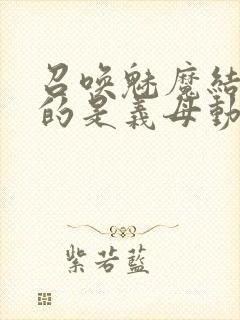 召唤魅魔結
的是義母動
紫若藍